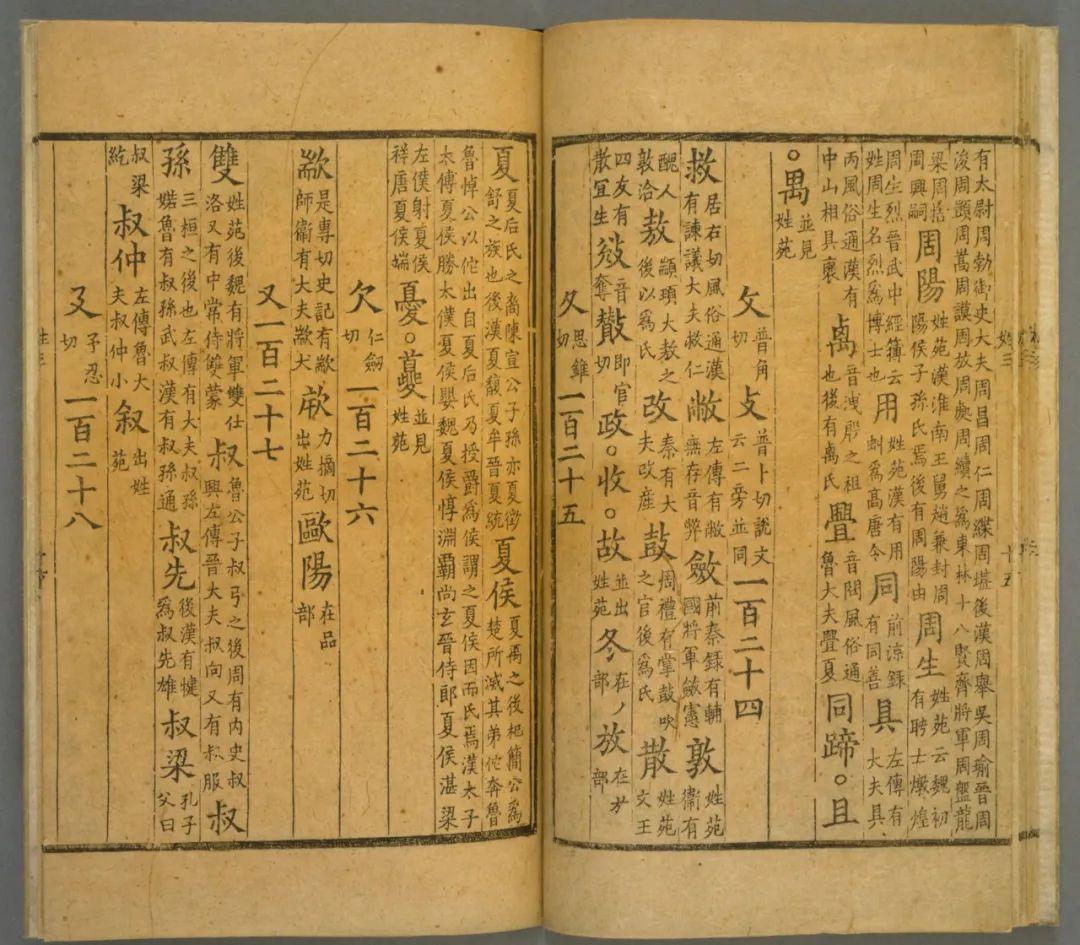 有太尉周勃御史大夫周昌周仁周緤周堪後漢周舉吳周瑜晉周
浚周顗周嵩周謨周放周處周續之為東林十八賢齊將軍周盤龍
梁周捨周興嗣周陽姓苑漢淮南王舅趙兼封周陽侯子孫氏焉後有周陽由周生姓苑云魏初有聘士燉煌
周生烈晉武中經簿云姓周生名烈爲博士也用姓苑漢有用蚪爲高唐令同前涼錄有同善具左傳有大夫具
丙風俗通漢有中山相具褱卨音洩殷之祖也後有卨氏舋音閔風俗通魯大夫舋夏同蹄。且
。禺並見姓苑
攵普角切攴普卜切說文云二旁並同一百二十四
救居右切風俗通漢有諫議大夫救仁敝左傳有敝無存音弊斂前秦錄有輔國將軍斂憲敦姓苑衞有
醜人敦洽敖顓頊大敖之後以爲氏改秦有大夫改產鼓周禮有掌鼓吹之官後爲氏散姓苑文王
四友有散宜生敚音奪即官切政。收。故並出姓苑冬在丿部放在方部
夊思錐切一百二十五
夏夏后氏之裔陳宣公子孫亦夏徵舒之族也後漢夏馥夏牟晉夏統夏侯夏禹之後杞簡公爲楚所滅其弟佗奔魯
魯悼公以佗出自夏后氏乃授爵爲侯謂之夏侯因而氏焉漢太子
太傅夏侯勝太僕夏侯嬰魏夏侯惇淵霸尚玄晉侍郎夏侯湛梁
左僕射夏侯祥唐夏侯端憂。夔並見姓苑
欠仁劒切一百二十六
歂是專切史記有歂師衞有大夫歂犬㰐力摘切出姓苑歐陽在品部
又一百二十七
雙姓苑後魏有將軍雙仕洛又有中常侍雙蒙叔魯公子叔弓之後周有內史叔興左傳晉大夫叔向又有叔服叔
孫三桓之後也左傳有大夫叔孫婼魯有叔孫武叔漢有叔孫通叔先後漢有犍爲叔先雄叔梁孔子父曰
叔梁紇叔仲左傳魯大夫叔仲小叙出姓苑
廴予忍切一百二十八